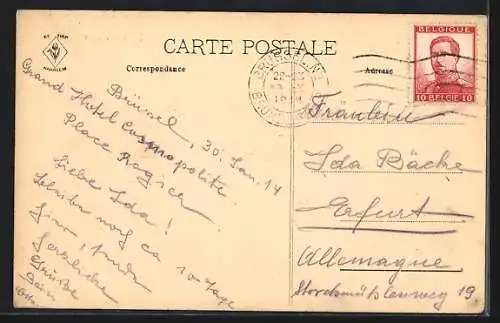 CARTE POSTALE
Correspondance
Adresse
BELGIQUE
10 BELGIE 10
Brüssel, 30. Jan. 14
Grand Hotel Cosmopolite
Place Rogier
Liebe Ida!
bleibe noch ca 10 Tage
hier,
Herzliche
Grüße
Dein
Fräulein
Ida Bäcke
Erfurt
Allemagne
Storchmühlenweg 19